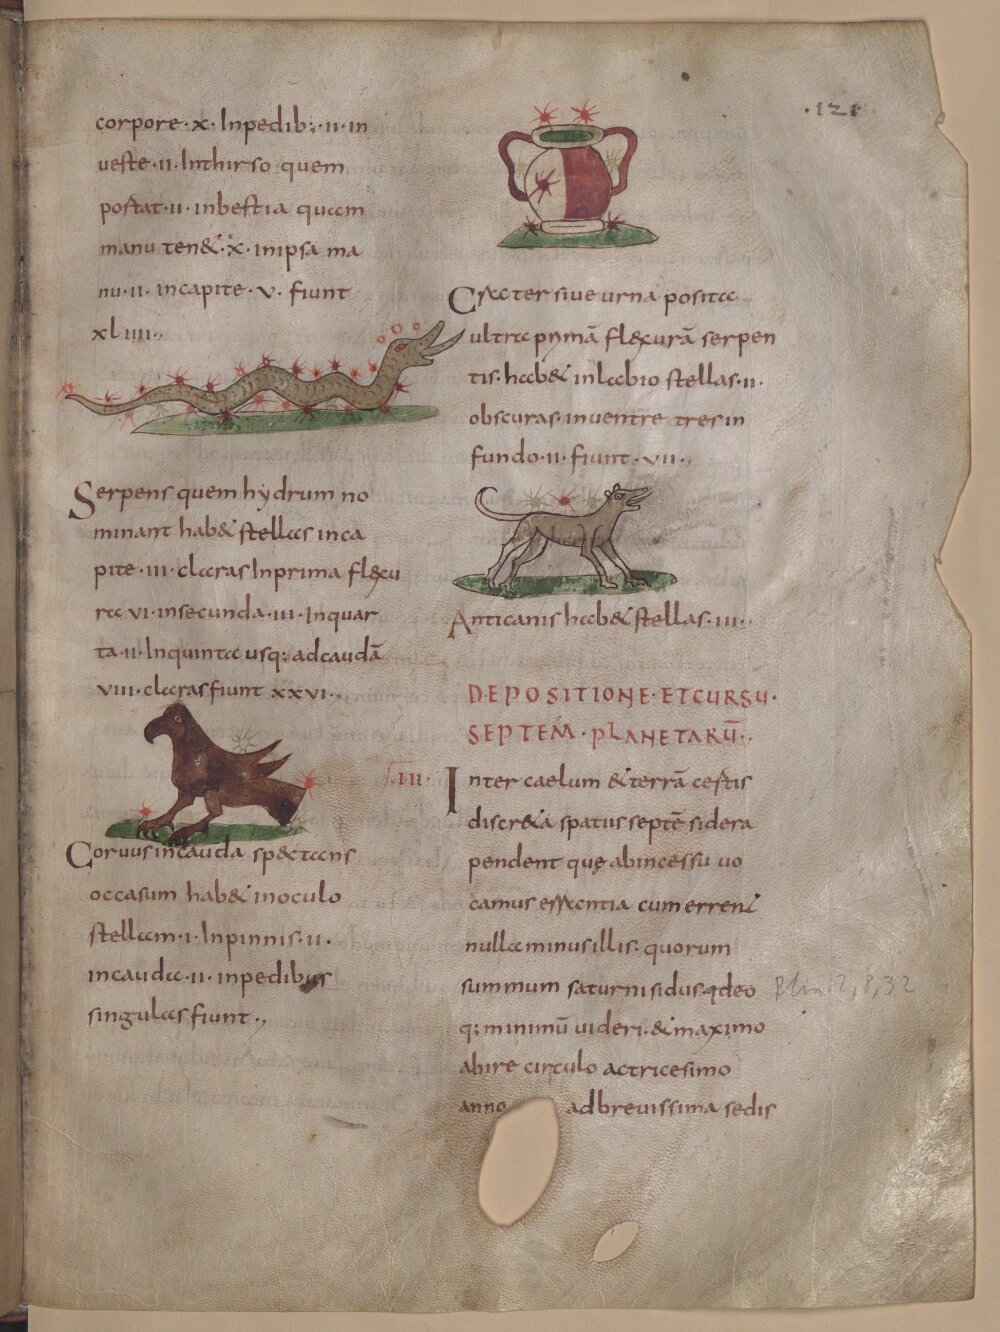 ·121·
corpore·x·Inpedib;·ii·in
ueste·ii·Inthirso quem
portat·ii·inbestia quam
manu ten&·x·inipsa ma
nu·ii·incapite·v·fiunt
xliiii·,
Serpens quem hydrum no
minant hab& stellas inca
pite·iii·claras Inprima flexu
ra vi·insecunda·iii·Inquar
ta·ii·Inquinta usq; adcaudā
viii·claras fiunt xxvi·,
Coruus incauda spectans
occasum hab& inoculo
stellam·i·Inpinnis·ii·
incauda·ii·inpedibus
singulas fiunt·,
Crater siue urna posita
ultra primā flexurā serpen
tis·hab& inlabio stellas·ii·
obscuras·inuentre tres in
fundo·ii·fiunt·vii·,
Anticanis hab& stellas·iii·,
DEPOSITIONE·ETCURSU·
SEPTEM·PLANETARŪ·
iii· Inter caelum &terrā certis
discr&a spatiis septē sidera
pendent quę abincessu uo
camus errantia cum errent
nulla minus illis·quorum
summum saturni sidus·ideo
q; minimū uideri·&maximo
abire circulo actricesimo
anno adbreuissima sedis
Plin 2, 8, 32